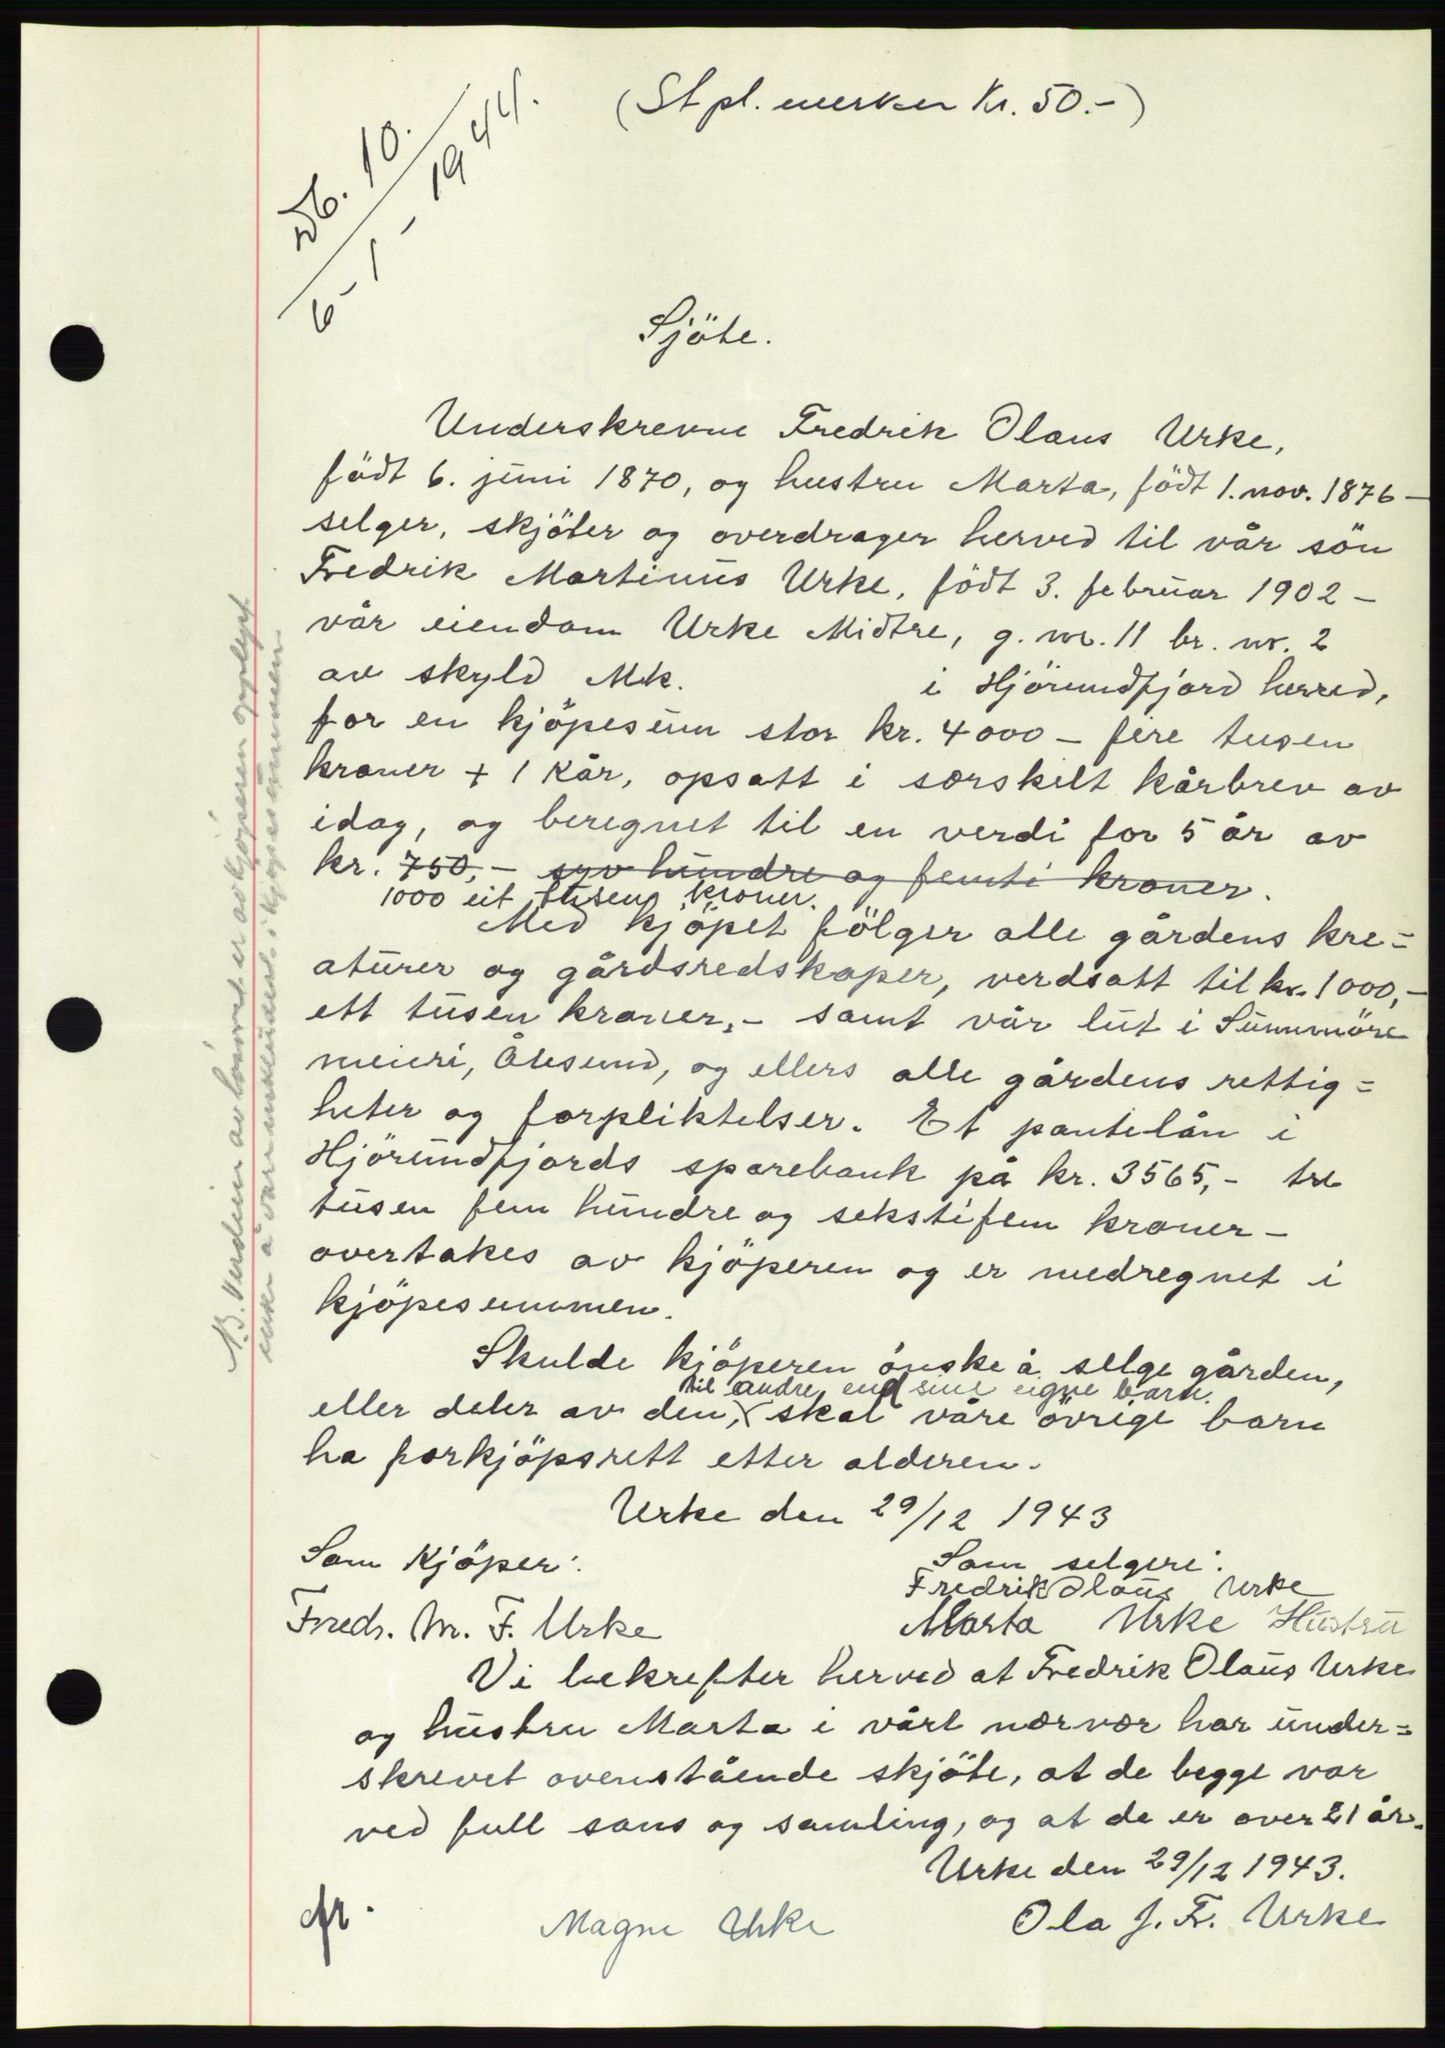 (Stpl. merker Kr. 50.-)
Db. 10.
6-1-1944.
Sjöte.
Underskrevne Fredrik Olaus Urke,
födt 6. juni 1870, og hustru Marta, födt 1. nov. 1876 -
selger, skjöter og overdrager herved til vår sön
Fredrik Martinus Urke, födt 3. februar 1902 -
vår eiendom Urke Midtre, g. nr. 11 br. nr. 2
av skyld Mk. i Hjörundfjord herred,
for en kjöpesum stor kr. 4000 - fire tusen
kroner + 1 kår, opsatt i særskilt kårbrev av
idag, og beregnet til en verdi for 5 år av
kr. 750,- syv hundre og femti kroner.
1000 eit tusen kroner.
Med kjöpet fölger alle gårdens kre=
aturer og gårdsredskaper, verdsatt til kr. 1000,-
ett tusen kroner,- samt vår lut i Sunnmöre
meieri, Ålesund, og ellers alle gårdens rettig=
heter og forpliktelser. Et pantelån i
Hjörundfjords sparebank på kr. 3565,- tre
tusen fem hundre og sekstifem kroner -
overtakes av kjöperen og er medregnet i
kjöpesummen.
Skulde kjöperen önske å selge gården,
til andre end sine eigne barn.
eller deler av den, skal våre övrige barn
ha forkjöpsrett etter alderen.
Urke den 29/12 1943
Som Kjöper:
Som selgere:
Fredrik Olaus Urke
Fredr. M. F. Urke
Marta Urke Hustru
Vi bekrefter herved at Fredrik Olaus Urke
og hustru Marta i vårt nærvær har under=
skrevet ovenstående skjöte, at de begge var
ved full sans og samling, og at de er over 21 år.
Urke den 29/12 1943.
Magne Urke
Ola J. Fr. Urke
N.B. Verdien av kårret er av kjöperen
å være innbludert i kjöpesummen